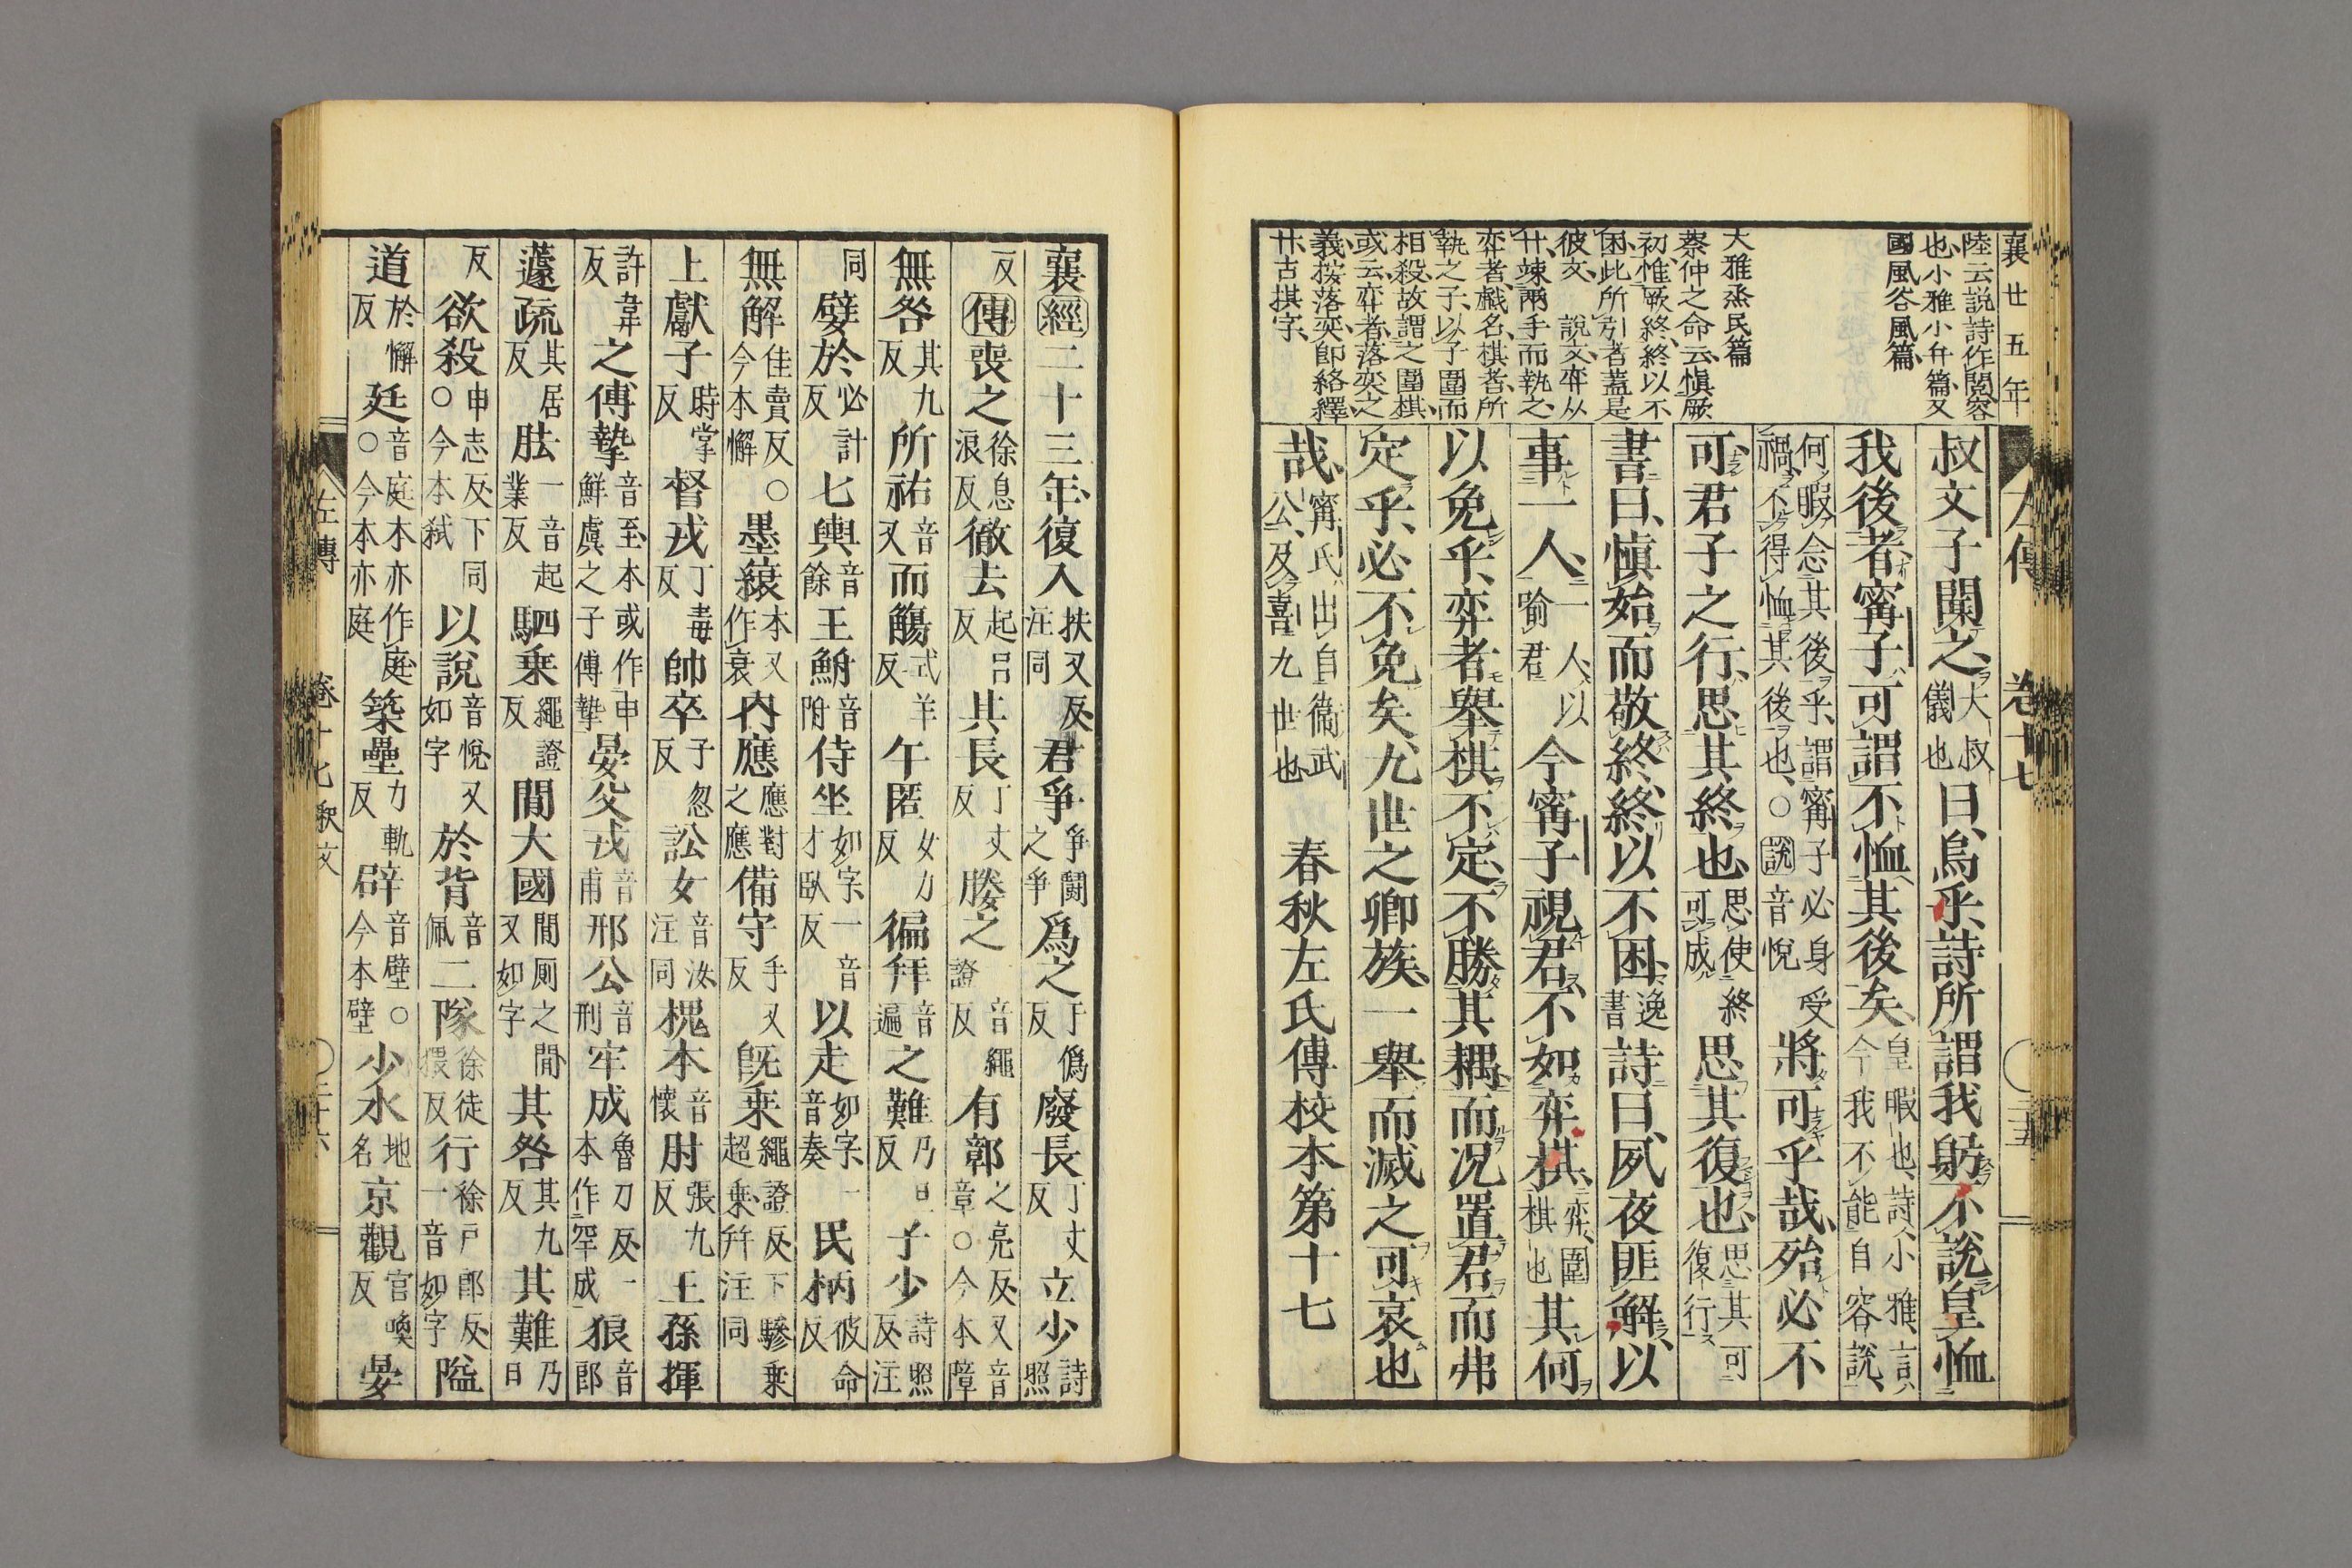 襄廿五年
陸云說詩作閱容
也小雅小弁篇又
國風谷風篇
大雅烝民篇
蔡仲之命云愼厥
初惟厥終終以不
困此所引者蓋是
彼文 說文弈从
廾竦兩手而執之
弈者戲名棋者所
執之子以子圍而
相殺故謂之圍棋
或云弈者落奕之
義按落奕即絡繹
廿古棋字
左傳 卷十七 三十五
叔文子聞之大叔儀也曰烏乎詩所謂我躬不說皇恤
我後者甯子可謂不恤其後矣皇暇也詩小雅言今我不能自容說
何暇念其後乎謂甯子必身受禍不得恤其後也○說音悅將可乎哉殆必不
可君子之行思其終也思使終可成思其復也思其可復行
書曰愼始而敬終終以不困逸書詩曰夙夜匪解以
事一人一人以喻君今甯子視君不如弈棋弈圍棋也其何
以免乎弈者舉棋不定不勝其耦而況置君而弗
定乎必不免矣九世之卿族一舉而滅之可哀也
哉甯氏出自衞武公及喜九世也 春秋左氏傳校本第十七
襄經二十三年復入扶又反注同君爭爭鬬之爭爲之于僞反廢長丁丈反立少詩照
反傳喪之徐息浪反徹去起呂反其長丁丈反勝之音繩證反有鄣之亮反又音章○今本障
無咎其九反所祐音又而觴式羊反午匿女力反徧拜音遍之難乃旦反子少詩照反注
同嬖於必計反七輿音餘王鮒音附侍坐如字一音才臥反以走如字一音奏民柄彼命反
無解佳賣反○今本懈墨縗本又作衰內應應對之應備守手又反旣乗繩證反下驂乗超乗幷注同
上獻子時掌反督戎丁毒反帥卒子忽反訟女音汝注同槐本音懷肘張九反王孫揮
許韋反之傅摯音至本或作申鮮虞之子傅摯晏父戎音甫邢公音刑牢成魯刀反一本作罕成狼音郎
蘧疏其居反胠一音起業反駟乗繩證反閒大國閒厠之閒又如字其咎其九反其難乃旦
反欲殺申志反下同○今本弑以說音悅又如字於背音佩二隊徐徒猥反行徐戶郎反一音如字隘
道於懈反廷音庭本亦作庭○今本亦庭築壘力軌反辟音壁○今本壁少水地名京觀官喚反晏
左傳 卷十七釈文 三十六